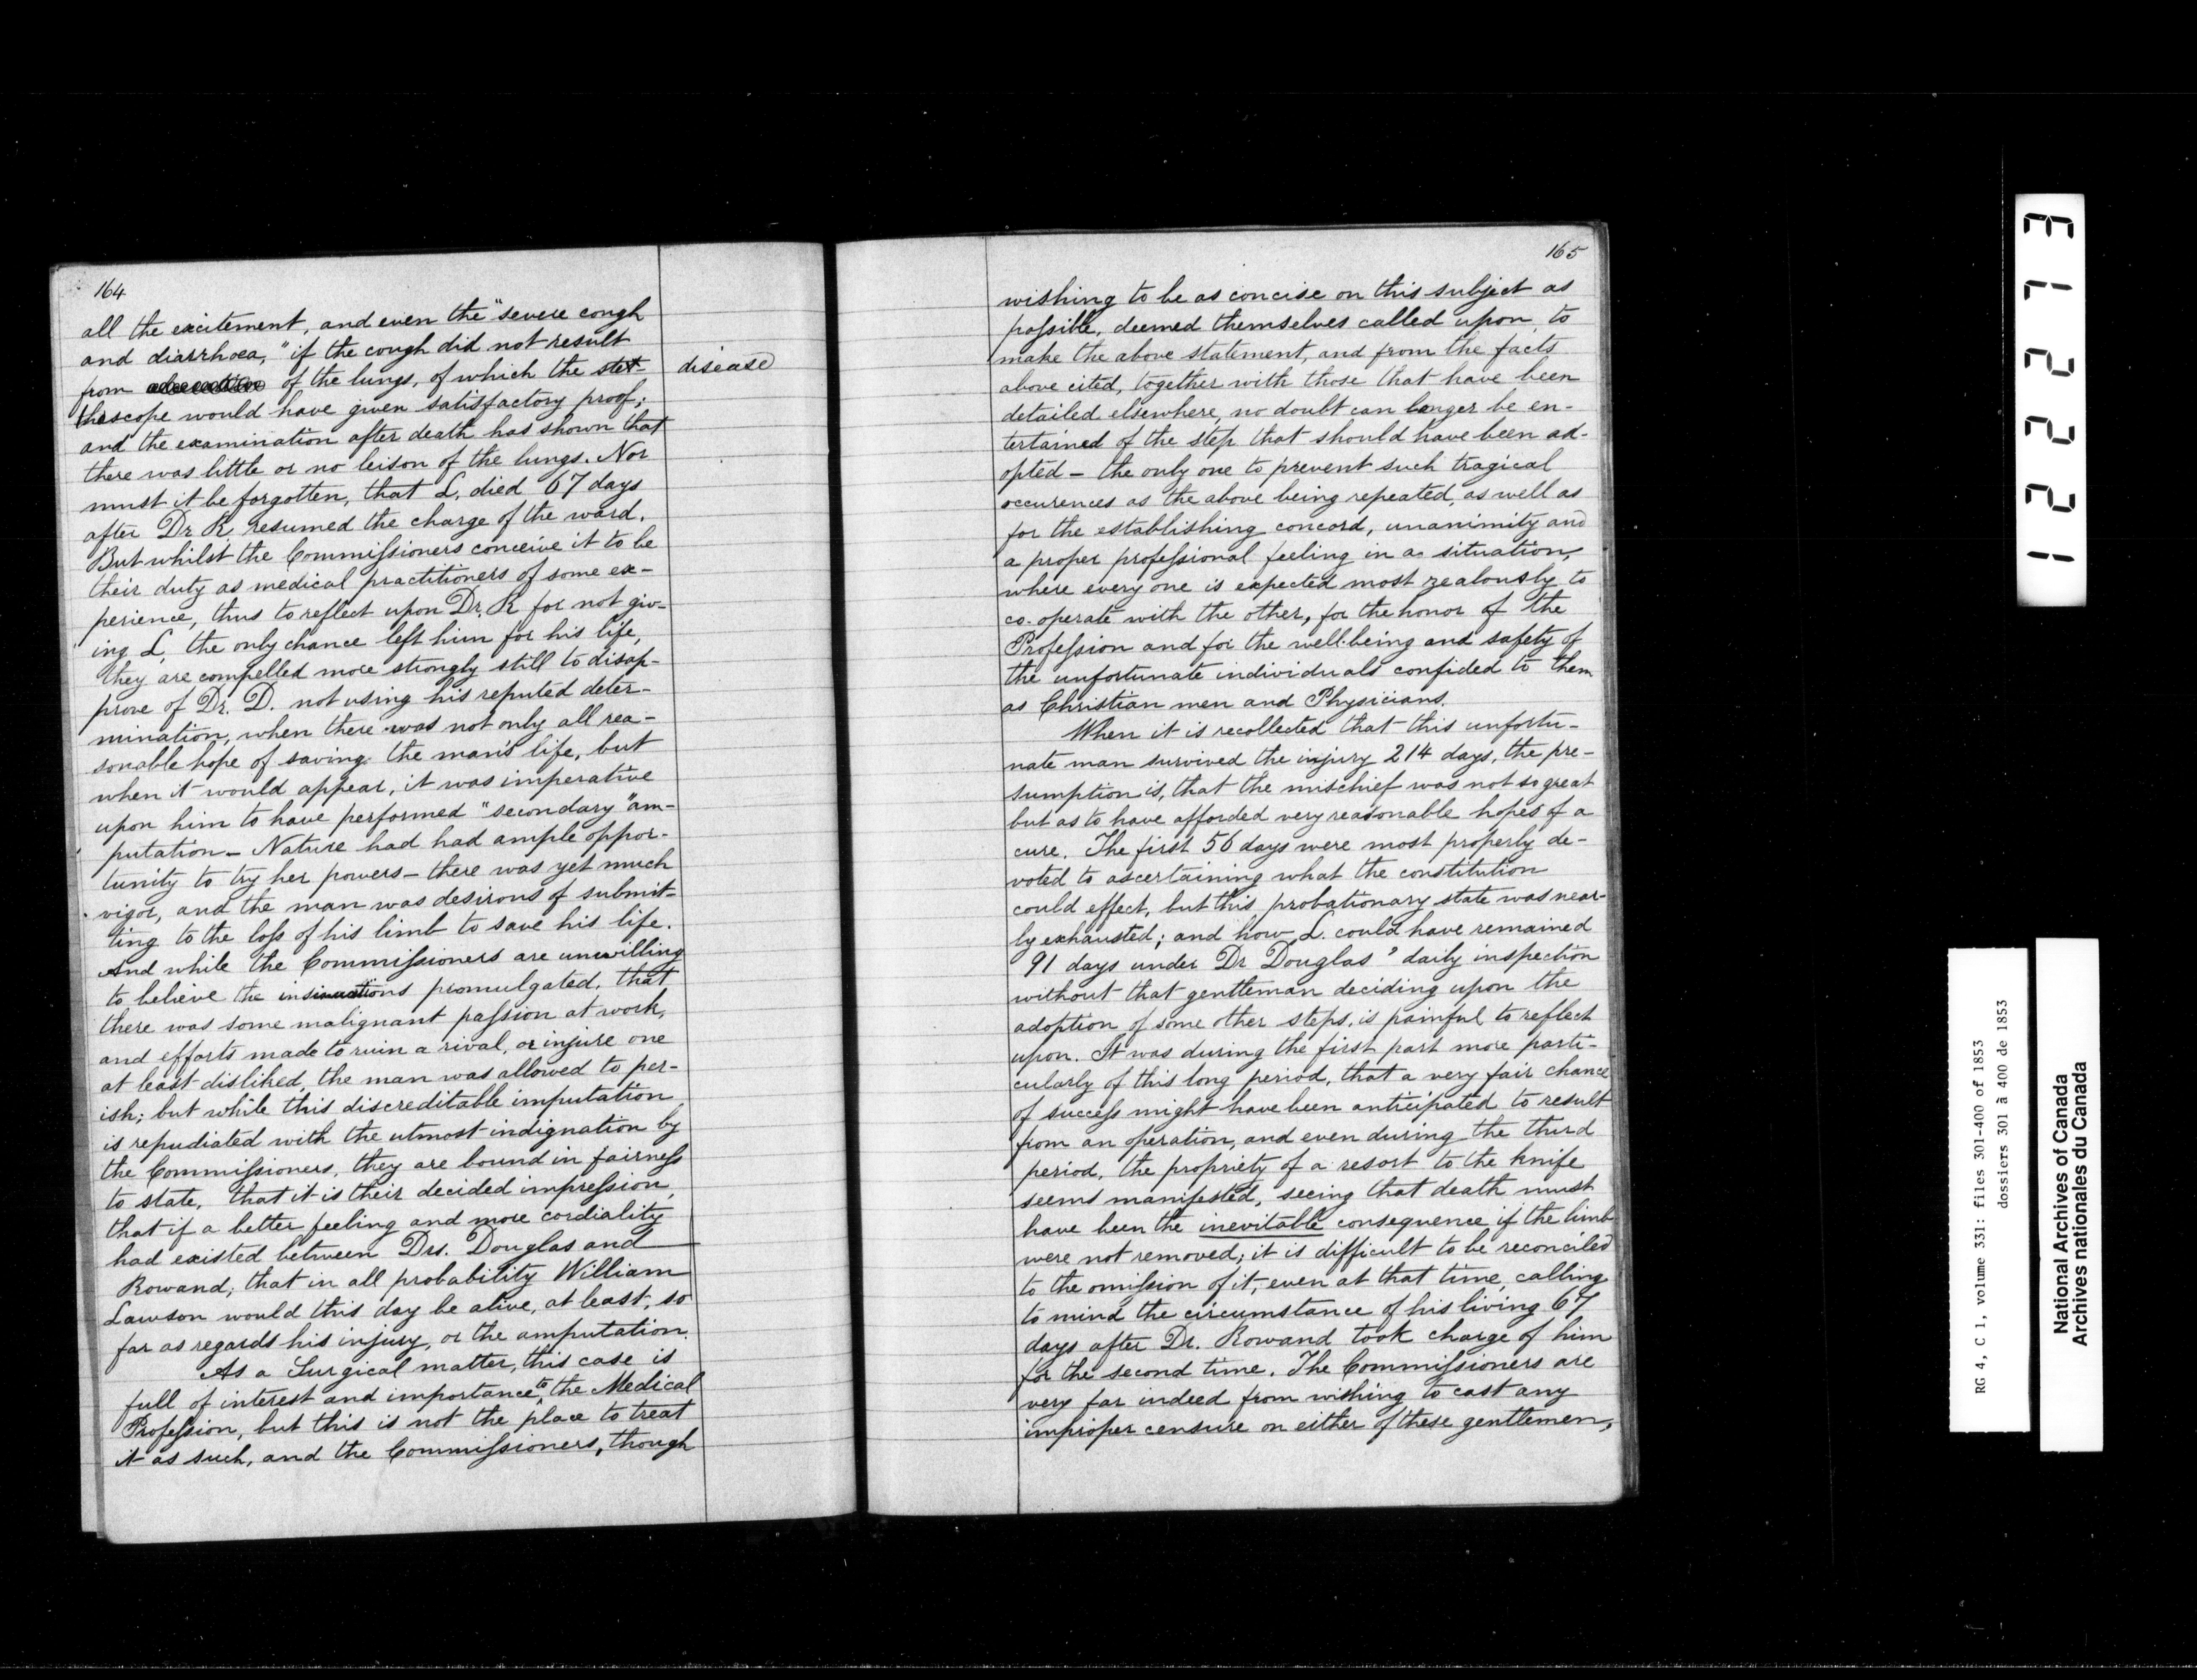 164
all the excitement, and even the "severe cough
and diarrhoea," if the cough did not result
from of the lungs, of which the stet-
disease
hescope would have given satisfactory proof;
and the examination after death has shown that
there was little or no leison of the lungs. Nor
must it be forgotten, that L. died 67 days
after Dr R. resumed the charge of the ward.
But whilst the Commissioners conceive it to be
their duty as medical practitioners of some ex-
perience, thus to reflect upon Dr. R for not giv-
ing L. the only chance left him for his life,
they are compelled more strongly still to disap-
prove of Dr. D. not using his reputed deter-
mination, when there was not only all rea-
sonable hope of saving the man's life, but
when it would appear, it was imperative
upon him to have performed "secondary" am-
putation - Nature had had ample oppor-
tunity to try her powers - there was yet much
vigor, and the man was desirous of submit-
ting to the loss of his limb to save his life.
And while the Commissioners are unwilling
to believe the insinuations promulgated, that
there was some malignant passion at work,
and efforts made to ruin a rival, or injure one
at least disliked, the man was allowed to per-
ish; but while this discreditable imputation
is repudiated with the utmost indignation by
the Commissioners, they are bound in fairness
to state, that it is their decided impression,
that if a better feeling and more cordiality
had existed between Drs. Douglas and
Rowand; that in all probability William
Lawson would this day be alive, at least, so
far as regards his injury, or the amputation.
As a Surgical matter, this case is
full of interest and importance to the Medical
Profession, but this is not the place to treat
it as such, and the Commissioners, though
165
wishing to be as concise on this subject as
possible, deemed themselves called upon to
make the above statement, and from the facts
above cited, together with those that have been
detailed elsewhere, no doubt can longer be en-
tertained of the step that should have been ad-
opted - the only one to prevent such tragical
occurences as the above being repeated, as well as
for the establishing concord, unanimity and
a proper professional feeling in a situation,
where every one is expected most zealously to
co-operate with the other, for the honor of the
Profession and for the well-being and safety of
the unfortunate individuals confided to them
as Christian men and Physicians.
When it is recollected that this unfortu-
nate man survived the injury 214 days, the pre-
sumption is, that the mischief was not so great
but as to have afforded very reasonable hopes of a
cure. The first 56 days were most properly de-
voted to ascertaining what the constitution
could effect, but this probationary state was near-
ly exhausted; and how L. could have remained
91 days under Dr Douglas' daily inspection
without that gentleman deciding upon the
adoption of some other steps, is painful to reflect
upon. It was during the first part more parti-
cularly of this long period, that a very fair chance
of success might have been anticipated to result
from an operation, and even during the third
period, the propriety of a resort to the knife
seems manifested, seeing that death must
have been the inevitable consequence if the limb
were not removed; it is difficult to be reconciled
to the omission of it, even at that time, calling
to mind the circumstance of his living 67
days after Dr. Rowand took charge of him
for the second time. The Commissioners are
very far indeed from wishing to cast any
improper censure on either of these gentlemen,
122273
RG 4, C 1, volume 331: files 301-400 of 1853
dossiers 301 à 400 de 1853
National Archives of Canada
Archives nationales du Canada